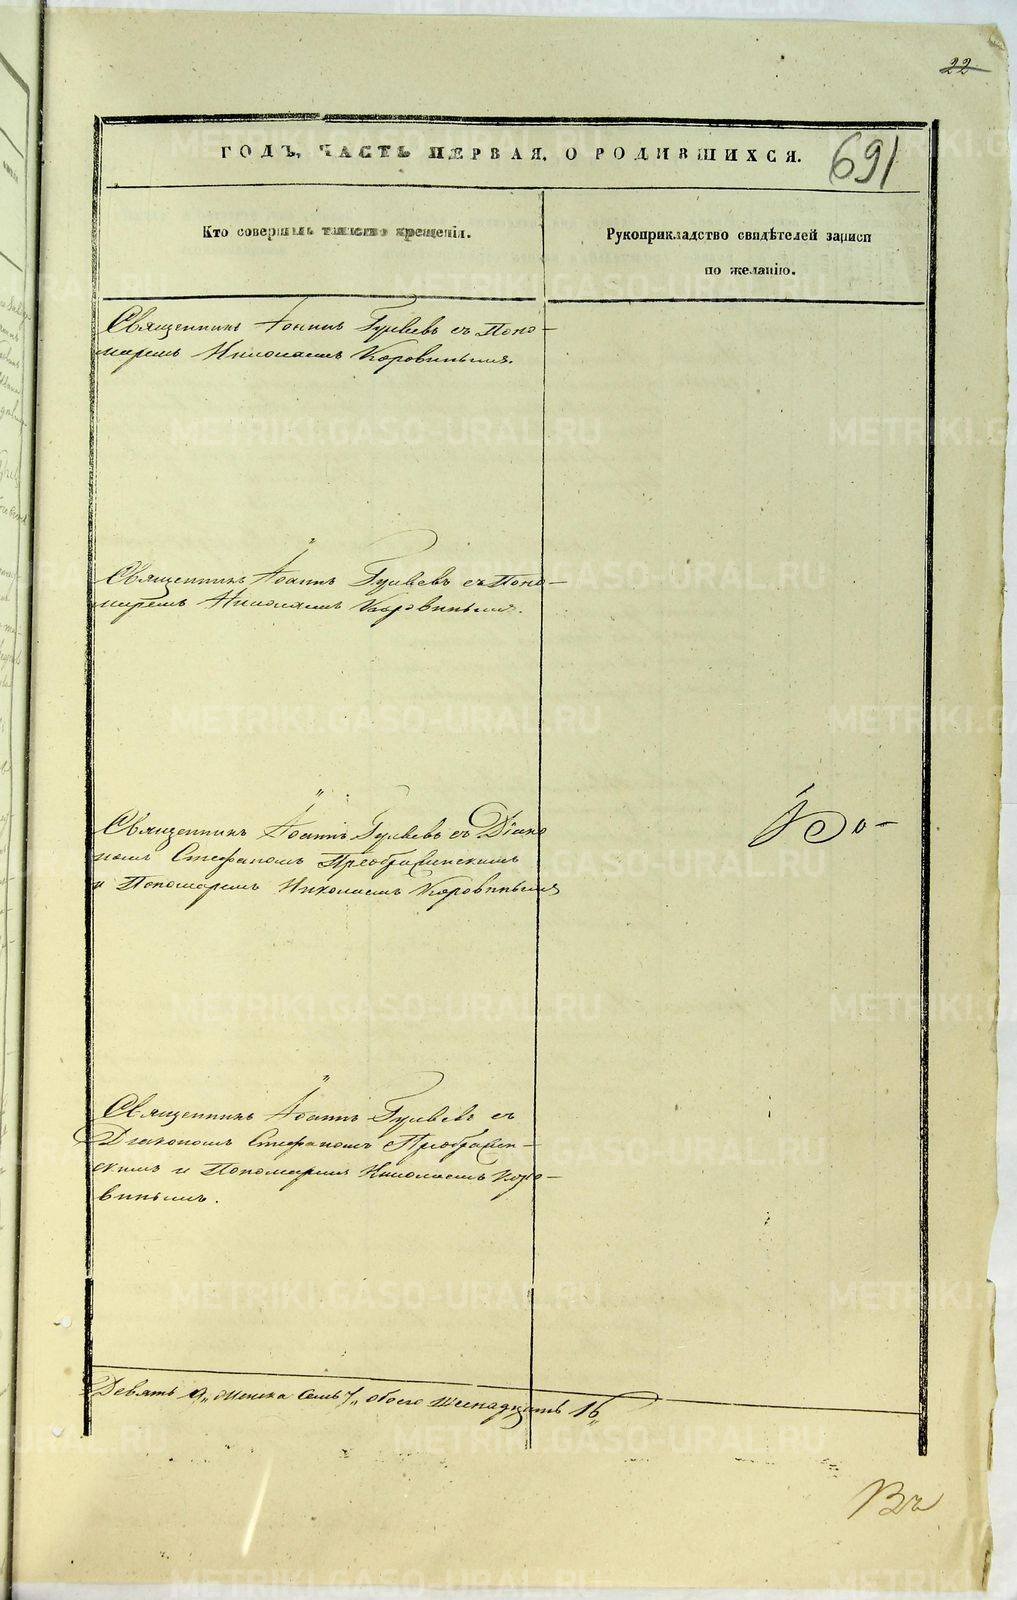 22
ГОДЪ, ЧАСТЬ ПЕРВАЯ, О РОДИВШИХСЯ.
691
Кто совершалъ таинство крещенія.
Рукоприкладство свидѣтелей записи
по желанію.
Священникъ Іоаннъ съ Поно-
маремъ Николаемъ Коровинымъ.
Священникъ Іоаннъ съ Поно-
маремъ Николаемъ Коровинымъ.
Священникъ Іоаннъ съ Діако
номъ Стефаномъ Преображенскимъ
и Пономаремъ Николаемъ Коровинымъ
Священникъ Іоаннъ съ
Діакономъ Стефаномъ Преображен-
скимъ и Пономаремъ Николаемъ Коро-
винымъ.
Девять 9, женска семь 7, обоего шеснадцать 16
METRIKI.GASO-URAL.RU